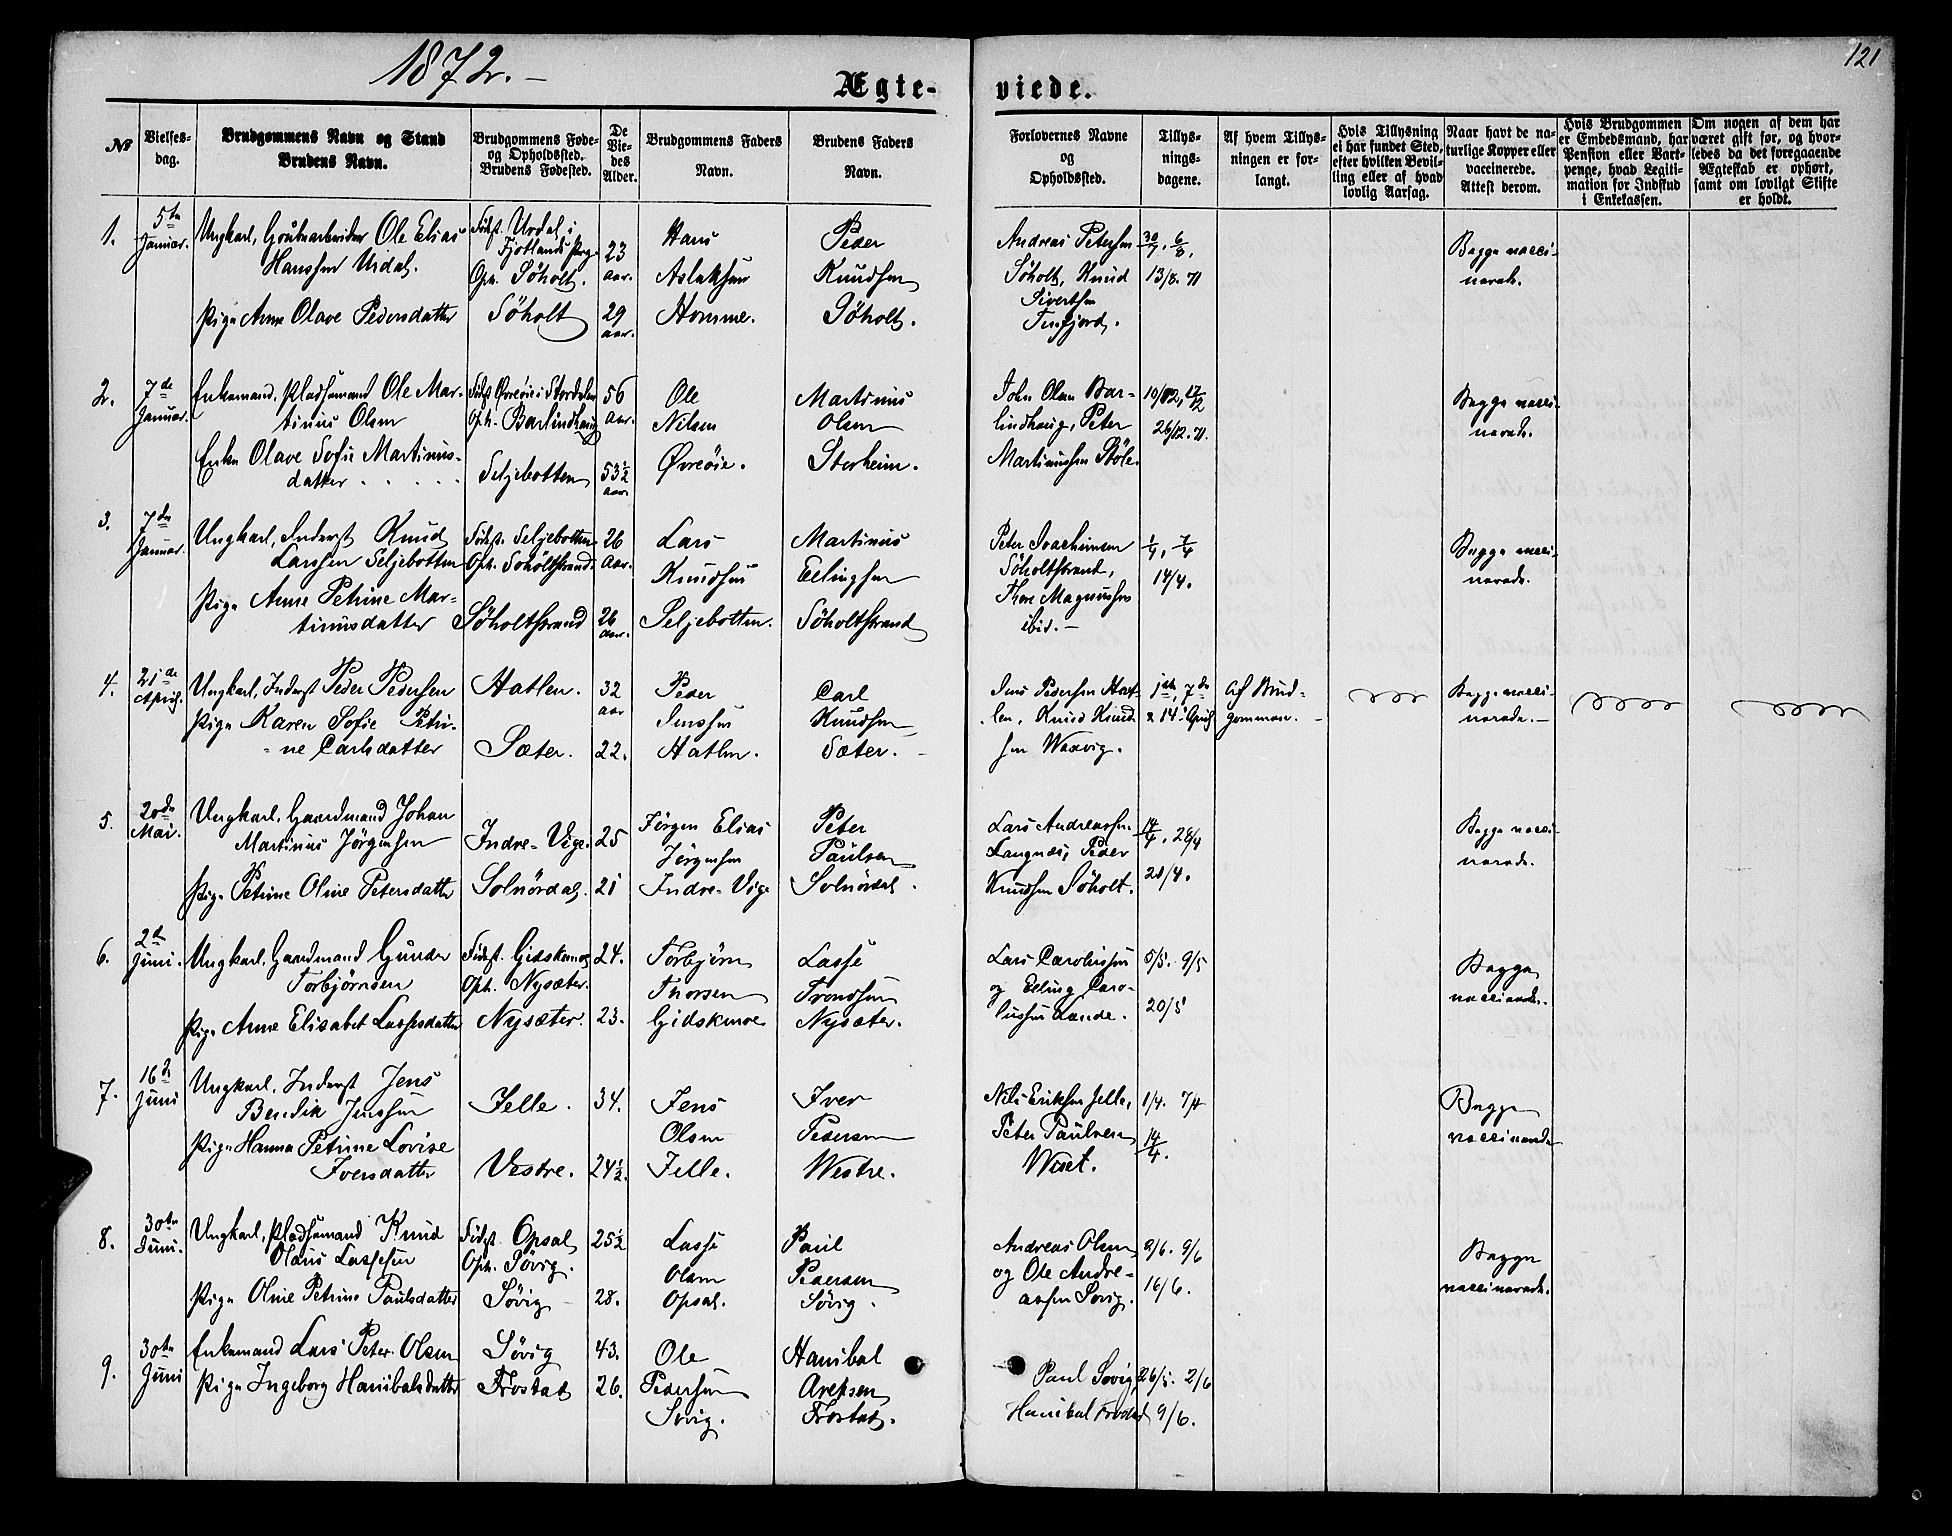 1872.-
121
Ægte-
viede.
№
Vielses-
dag.
Brudgommens Navn og Stand
Brudens Navn.
Brudgommens Føde-
og Opholdssted.
Brudens Fødested.
De
Vie-
des
Alder.
Brudgommens Faders
Navn.
Brudens Faders
Navn.
Forlovernes Navne
og
Opholdssted.
Tillys-
nings-
dagene.
Af hvem Tillys-
ningen er for-
langt.
Hvis Tillysning
ei har fundet Sted,
efter hvilken Bevil-
ling eller af hvad
lovlig Aarsag.
Naar havt de na-
turlige Kopper eller
vaccinerede.
Attest derom.
Hvis Brudgommen
er Embedsmand, har
Pension eller Vart-
penge, hvad Legiti-
mation for Indskud
i Enkekassen.
Om nogen af dem har
været gift før, og hvor-
ledes da det foregaaende
Ægteskab er ophørt,
samt om lovligt Skifte
er holdt.
1.
5te
Januar.
Ungkarl, Grubearbeider Ole Elias
Hanssen Urdal.
Pige Anne Olave Pedersdatter
Fødest. Urdal i
Fjotlands Prg.
Oph. Söholt.
Söholt
23
aar.
29
aar.
Hans
Aslaksen
Homme.
Peder
Knudsen
Söholt.
Andreas Petersen
Söholt, Knud
Sivertsen
Tenfjord.
30/7. 6/8.
13/8. 71
Begge vacci-
nerede.
2.
7de
Januar.
Enkemand, Pladsemand Ole Mar-
tinus Olsen
Enke Olave Sofie Martinus-
datter . . . . .
Födest Øvreöie i Stordalen
Oph. Barlindhaug
Seljebotten
56
aar.
53½
aar
Ole
Nilsen
Øvreöie.
Martinus
Olsen
Storheim.
John Olsen Bar-
lindhaug, Peter
Martinussen Stöle.
10/12, 17/12
26/12. 71.
Begge vacci-
nerede.
3.
7de
Januar.
Ungkarl, Inderst Knud
Larssen Seljebotten
Pige Anne Petrine Mar-
tinusdatter
Födest. Seljebotten
Oph. Söholtstrand
Söholtstrand
26
Aar.
26
aar.
Lars
Knudsen
Seljebotten.
Martinus
Ellingsen
Söholtstrand
Peter Joachimsen
Söholtstrand,
Thore Magnussen
ibid.-
1/4, 7/4
14/4.
Begge vacci-
nerede.
4.
21de
April.
Ungkarl, Inderst Peder Pedersen
Pige Karen Sofie Petri-
ne Carlsdatter
Hatlen.
Sæter.
32
aar
22.
Peder
Jenssen
Hatlen.
Carl
Knudsen
Sæter.
Jens Pedersen Hat-
len, Knud Knud-
sen Waxvig.
1ste, 7de
& 14. April
Af Brud-
gommen.
Begge vacci-
nerede.-
5.
20de
Mai.
Ungkarl, Gaardmand Johan
Martinus Jörgensen
Pige Petrine Oline Petersdatter
Indre-Vige.
Solnördal.
25
21
Jörgen Elias
Jörgensen
Indre-Vige
Peter
Paulsen
Solnördal.
Lars Andreassen
Langnæs, Peder
Knudsen Söholt.
14/4. 28/4
21/4.
Begge vacci-
nerede.
6.
2d
Juni.
Ungkarl, Gaardmand Gunder
Torbjörnsen
Pige Anne Elisabet Lassesdatter
Födest. Gidskemo
Oph. Nysæter.
Nysæter.
24.
23.
Torbjörn
Thorsen
Gidskemoe
Lasse
Trondsen
Nysæter.
Lars Carolussen
og Elling Caro-
lussen Lande.
5/5. 9/5
20/5
Begge
vaccinerede.
7.
16d
Juni
Ungkarl, Inderst Jens
Bendik Jenssen
Pige Hanna Petrine Lovise
Iversdatter
Jelle.
Vestre.
34.
24½.
Jens
Olsen
Jelle.
Iver
Pedersen
Westre.
Nils Eriksen Jelle,
Peter Paulsen
Weset.
1/4. 7/4
14/4.
Begge
vaccinerede
8.
30te
Juni.
Ungkarl, Pladsemand Knud
Olaus Lassesen
Pige Oline Petrine Paulsdatter
Födest. Opsal
Oph. Sövig.
Sövig
25½
28.
Lasse
Olsen
Opsal.
Paul
Pedersen
Sövig.
Andreas Olsen
og Ole Andre-
assen Sovig.
2/6. 9/6
16/6.
Begge
vaccinerede.
9.
30te
Juni
Enkemand Lars Peter Olsen
Pige Ingeborg Hanibalsdatter
Sövig
Frostad
43.
26.
Ole
Pedersen
Sovig.
Hanibal
Arepsen
Frostad.
Paul Sovig
Hanibal Frostad
26/5. 2/6
9/6.